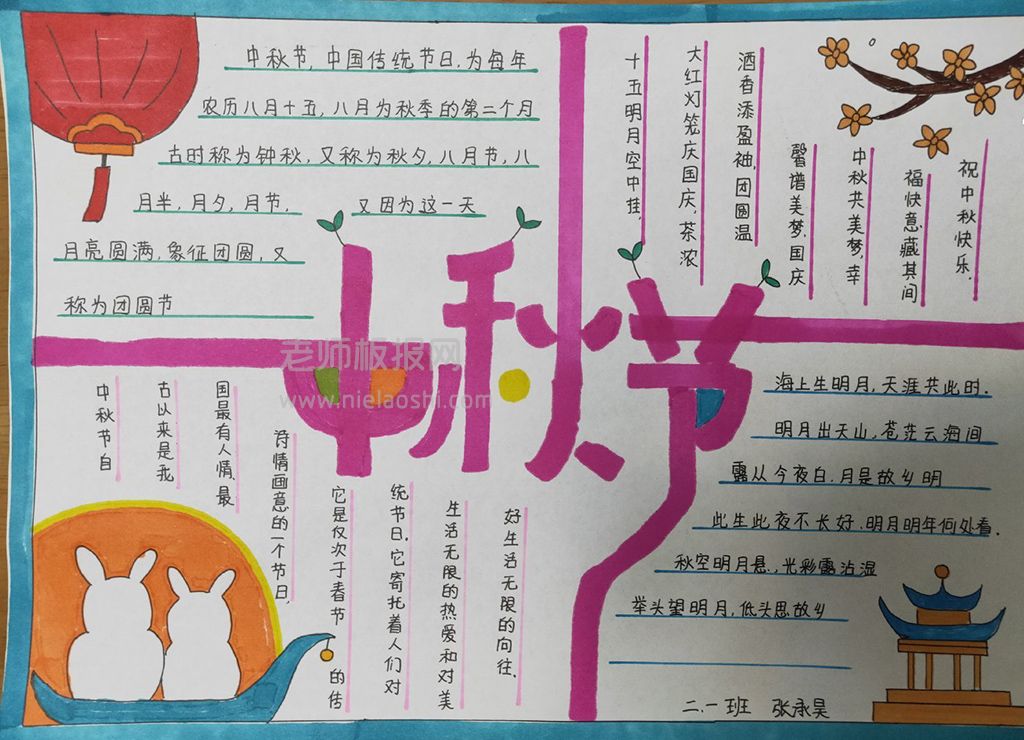 中秋节,中国传统节日,为每年
农历八月十五,八月为秋季的第二个月
古时称为钟秋,又称为秋夕,八月节,八
月半,月夕,月节. 又因为这一天
月亮圆满,象征团圆,又
称为团圆节
十五明月空中挂,
大红灯笼庆国庆,茶浓
酒香添盈袖,团圆温
馨谱美梦.国庆
中秋共美梦,幸
福快意藏其间
祝中秋快乐.
中秋节
老师板报网
www.nielaoshi.com
中秋节自
古以来是我
国最有人情、最
诗情画意的一个节日,
它是仅次于春节的传
统节日.它寄托着人们对
生活无限的热爱和对美
好生活无限的向往.
海上生明月,天涯共此时.
明月出天山,苍茫云海间
露从今夜白.月是故乡明
此生此夜不长好.明月明年何处看.
秋空明月悬.,光彩露沾湿
举头望明月,低头思故乡
二.一班 张承昊